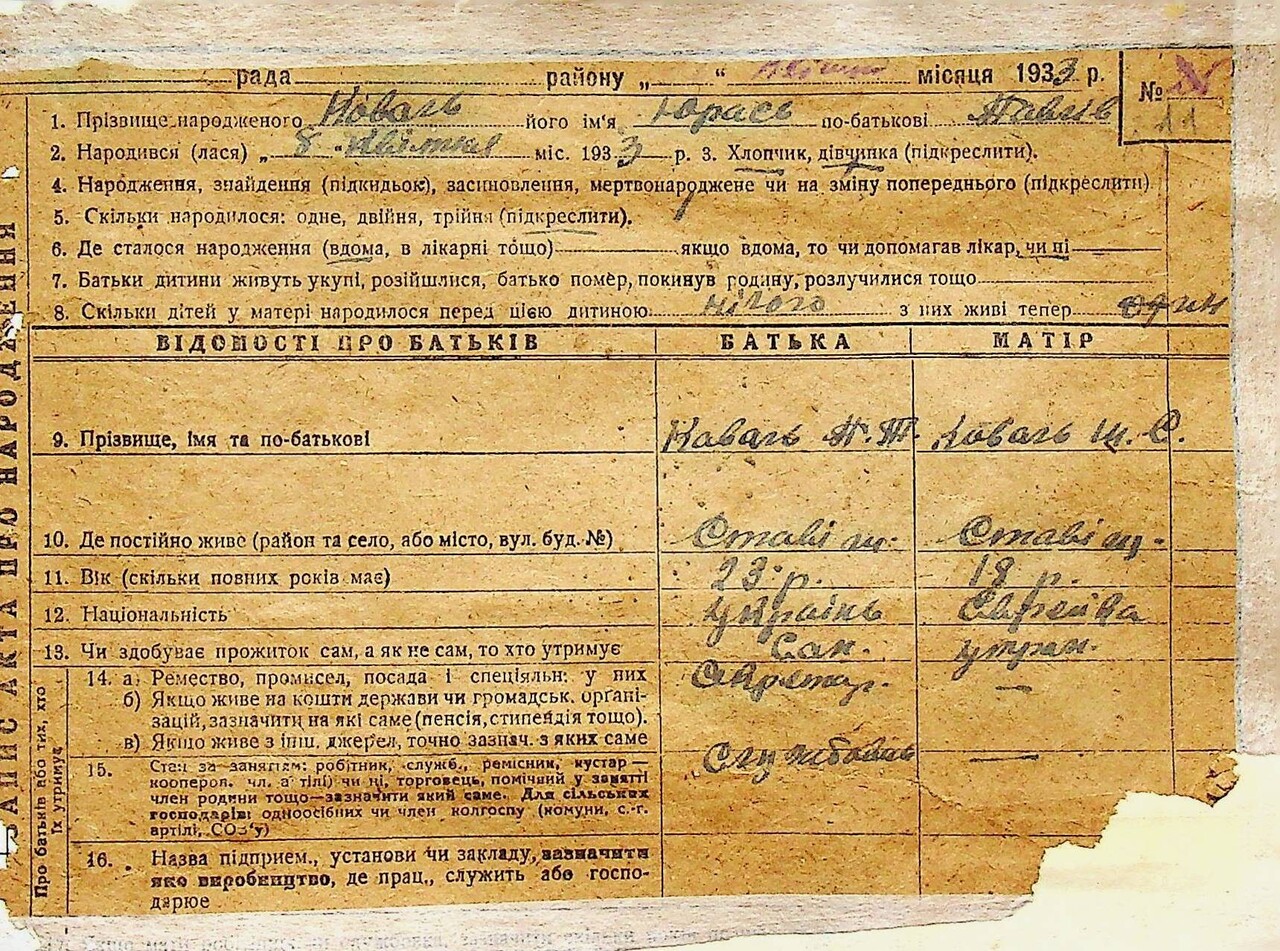 рада району „ “ місяця 1933 р.
№
11
1. Прізвище народженого Коваль його ім'я Юрась по-батькові Павлів
2. Народився (лася) „ 8 квітня міс. 1933 р. 3. Хлопчик, дівчинка (підкреслити).
4. Народження, знайдення (підкидьок), засиновлення, мертвонароджене чи на зміну попереднього (підкреслити)
5. Скільки народилося: одне, двійня, трійня (підкреслити).
6. Де сталося народження (вдома, в лікарні тощо) якщо вдома, то чи допомагав лікар, чи ні
7. Батьки дитини живуть укупі, розійшлися, батько помер, покинув родину, розлучилися тощо
8. Скільки дітей у матері народилося перед цією дитиною нічого з них живі тепер один
ВІДОМОСТІ ПРО БАТЬКІВ БАТЬКА МАТІР
9. Прізвище, імя та по-батькові Коваль П. Т. Коваль Ш. С.
10. Де постійно живе (район та село, або місто, вул. буд. №) Ставищ. Ставищ.
11. Вік (скільки повних років має) 23 р. 18 р.
12. Національність україньць Єврейка
13. Чи здобуває прожиток сам, а як не сам, то хто утримує Сам. утрим.
14. а) Ремество, промисел, посада і спеціяльн: у них Секретар. —
б) Якщо живе на кошти держави чи громадськ. органі-
зацій, зазначити на які саме (пенсія, стипендія тощо).
в) Якщо живе з інш. джерел, точно зазнач. з яких саме
15. Стан за заняттям: робітник, служб., ремісник, кустар— Службовець —
коопероя. чл. а тілі) чи ні, торговець, помічний у занятті
член родини тощо—зазначити який саме. Для сільських
господарів: одноосібних чи член колгоспу (комуни, с.-г.
артілі, СОЗ'у)
16. Назва підприєм., установи чи закладу, зазначити
яке виробництво, де прац., служить або госпо-
дарює
Про батьків або тих, хто
їх утримує
ЗАПИС АКТА ПРО НАРОДЖЕННЯ